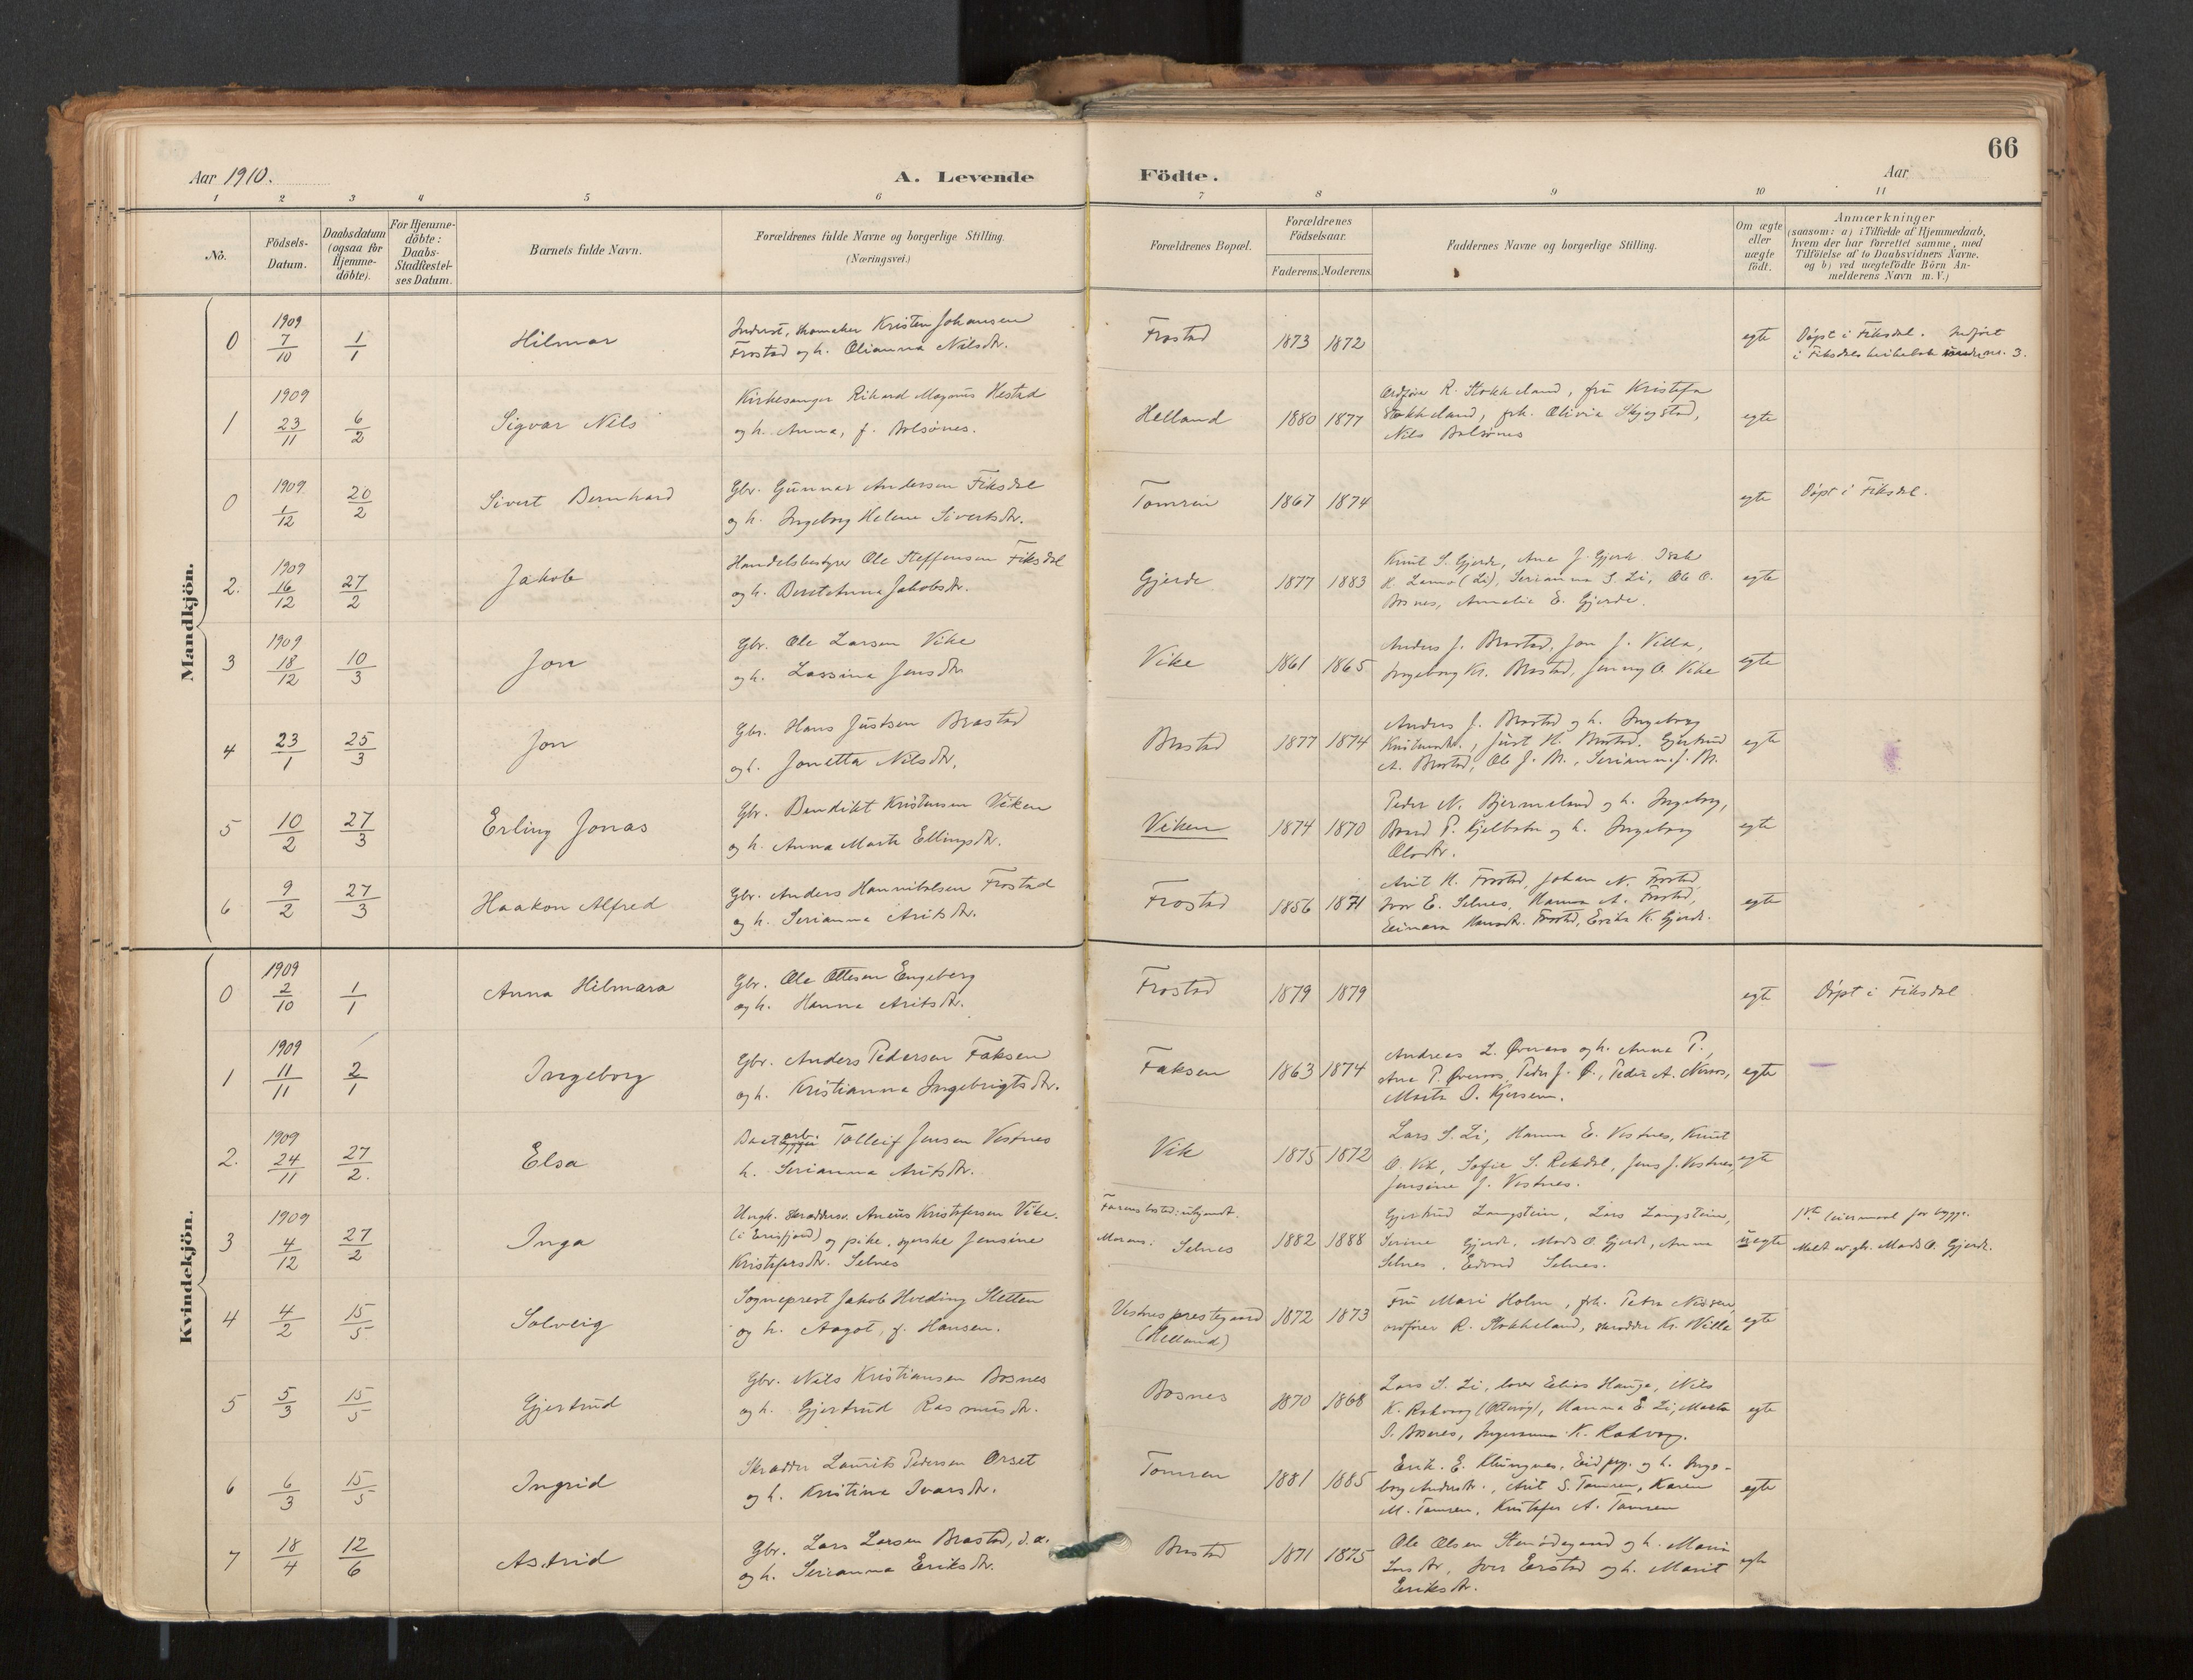 66
Aar 1910.
A. Levende
Födte.
Aar
1 2 3 4 5 6 7 8 9 10 11
No.
Födsels-
Datum.
Daabsdatum
(ogsaa for
Hjemme-
döbte).
For Hjemme-
döbte:
Daabs-
Stadfæstel-
ses Datum.
Barnets fulde Navn.
Forældrenes fulde Navne og borgerlige Stilling.
(Næringsvei.)
Forældrenes Bopæl.
Forældrenes
Födselsaar.
Faderens. Moderens.
Faddernes Navne og borgerlige Stilling.
Om ægte
eller
uægte
födt.
Anmærkninger
(saasom: a) i Tilfælde af Hjemmedaab,
hvem der har forrettet samme, med
Tilföielse af to Daabsvidners Navne.
og b) ved uægtefödte Börn An-
melderens Navn m. V.)
Mandkjön.
0 1909 7/10 1/1 Hilmar
Inderst, skomaker Kristen Johansen
Frostad og h. Olianna Nilsdtr.
Frostad 1873 1872
egte
Döpt i Fiksdal. Indført
i Fiksdal kirkebok under no. 3.
1 1909 23/11 6/2 Sigvar Nils
Kirkesanger Rikard Magnus Hestad
og h. Anna, f. Bolsönes.
Helland 1880 1877
Ordfører R. Stokkeland, fru Kristofa
Stokkeland, frk. Olivia Skjegstad,
Nils Bolsönes
egte
0 1909 1/12 20/2 Sivert Bernhard
Gbr. Gunnar Andersen Fiksdal
og h. Ingeborg Helene Sivertsdtr.
Tomren 1867 1874
egte
Döpt i Fiksdal.
2. 1909 16/12 27/2 Jakob
Handelsbestyrer Ole Steffensen Fiksdal
og h. Beret Anna Jakobsdtr.
Gjerde 1877 1883
Knut S. Gjerde, Ane J. Gjerde
(Li), Serianna S. Li, Ole O.
Bosnes, Amalie E. Gjerde.
egte
3 1909 18/12 10/3 Jon
Gbr. Ole Larsen Vike
og h. Lassina Jensdtr
Vike 1861 1865
Anders J. Brastad, Jon J. Villa,
Ingeborg Kr. Brastad, Jenny O. Vike
egte
4 23/1 25/3 Jon
Gbr. Hans Justsen Brastad
og h. Jonetta Nilsdtr.
Brastad 1877 1874
Anders J. Brastad og h. Ingeborg
Kristensdtr., Just H. Brastad, Gjertrud
A. Brastad, Ole J. B., Serianna J. B.
egte
5 10/2 27/3 Erling Jonas
Gbr. Bendikt Kristensen Viken
og h. Anna Marta Ellingsdtr.
Viken 1874 1870
Peder N. Bjermeland og h. Ingeborg,
P. Kjelbotn og h. Ingeborg
Olsdtr.
egte
6 9/2 27/3 Haakon Alfred
Gbr. Anders Hannibalsen Frostad
og h. Serianna Aritsdtr.
Frostad 1856 1871
Arit H. Frostad, Johan N. Frostad,
Iver E. Selnes, Hanna A. Frostad,
Hansdtr. Frostad, Erika K. Gjerde.
egte
Kvindekjön.
0 1909 2/10 1/1 Anna Hilmara
Gbr. Ole Ottesen Engeberg
og h. Hanna Aritsdtr.
Frostad 1879 1879
egte
Döpt i Fiksdal
1 1909 11/11 2/1 Ingeborg
Gbr. Anders Pedersen Faksen
og h. Kristianna Ingebrigtsdtr.
Faksen 1863 1874
Andreas L. Øveraas og h. Anna P.,
Ane P. Øveraas, Peder J. Ø., Peder A. Neraas,
Marta D. Kjersem.
egte
2. 1909 24/11 27/2. Elsa
Baatarb. Tolleif Jensen Vestnes
h. Serianna Aritsdtr.
Vik 1875 1872
Lars S. Li, Hanna E. Vestnes, Knut
O. Vik, Sofie S. Rekdal, Jens J. Vestnes,
Jensine J. Vestnes.
egte
3 1909 4/12 27/2 Inga
Ungk. skræddersv. Aneus Kristofersen Vike.
(i Eresfjord) og pike, syerske Jensine
Kristofersdtr. Selnes
Farens bosted: ubekjendt.
Morens: Selnes 1882 1888
Gjertrud Langstein, Lars Langstein,
Serine Gjerde, Mads O. Gjerde, Anna
Selnes, Edvard Selnes.
uegte
1ste leiermaal for begge.
Meldt av gbr. Mads O. Gjerde.
4 4/2 15/5 Solveig
Sogneprest Jakob Hveding Sletten
og h. Aagot, f. Hansen.
Vestnes prestegaard
(Helland) 1872 1873
Fru Mari Holm, frk. Petra Nissen,
ordfører R. Stokkeland, skrædder Kr. Villa
egte
5 5/3 15/5 Gjertrud
Gbr. Nils Kristiansen Bosnes
og h. Gjertrud Rasmusdtr.
Bosnes 1870 1868
Lars S. Li, lærer Elias Hauge, Nils
K. Rakvaag, Hanna E. Li, Marta
O. Bosnes, K. Rakvaag.
egte
6 6/3 15/5 Ingrid
Skrædder Laurits Pedersen Orset
og h. Kristina Ivarsdtr.
Tomren 1881 1885
Erik E. Klungnes, og h. Inge-
borg Andersdtr., Arit S. Tomren, Karen
M. Tomren, Kristofer A. Tomren
egte
7 18/4 12/6 Astrid
Gbr. Lars Larsen Brastad, d. æ.
og h. Serianna Eriksdtr.
Brastad 1871 1875
Ole Olsen Stenödegaard og h. Maria
Larsdtr, Iver Erstad og h. Marit
Eriksdtr.
egte